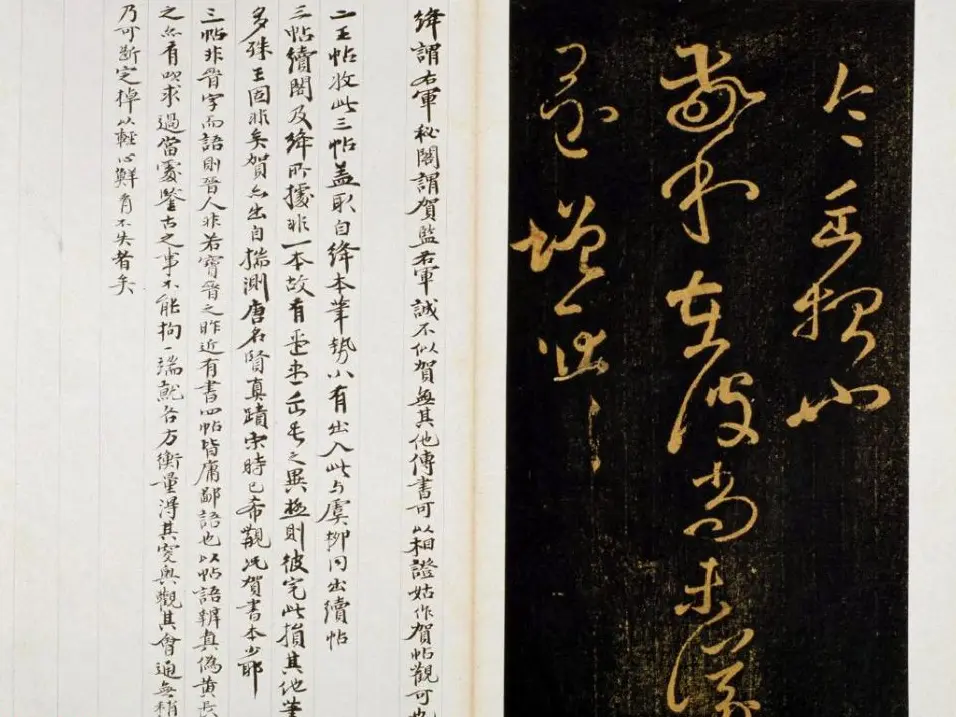 今
在彼尚未
增慨
絳謂右軍秘閣謂賀監右軍誠不似賀無其他傳書可以相證姑作賀帖觀可也
二王帖收此三帖蓋取自絳本筆勢小有出入此与虞柳同出續帖
三帖續閣及絳所據非一本故有之異極則彼完此損其他筆
多殊王固非矣賀亦出自揣測唐名賢真蹟宋時已希覯况賀書本少耶
三帖非晉字而語則晉人非若寶晉之昨近有書四帖皆庸鄙語也以帖語辨真偽黄長
之亦有吹求過當處鑒古之事不能拘一端就各方衡量得其突奥觀其會通無稍
乃可斷定掉以輕心鮮有不失者矣